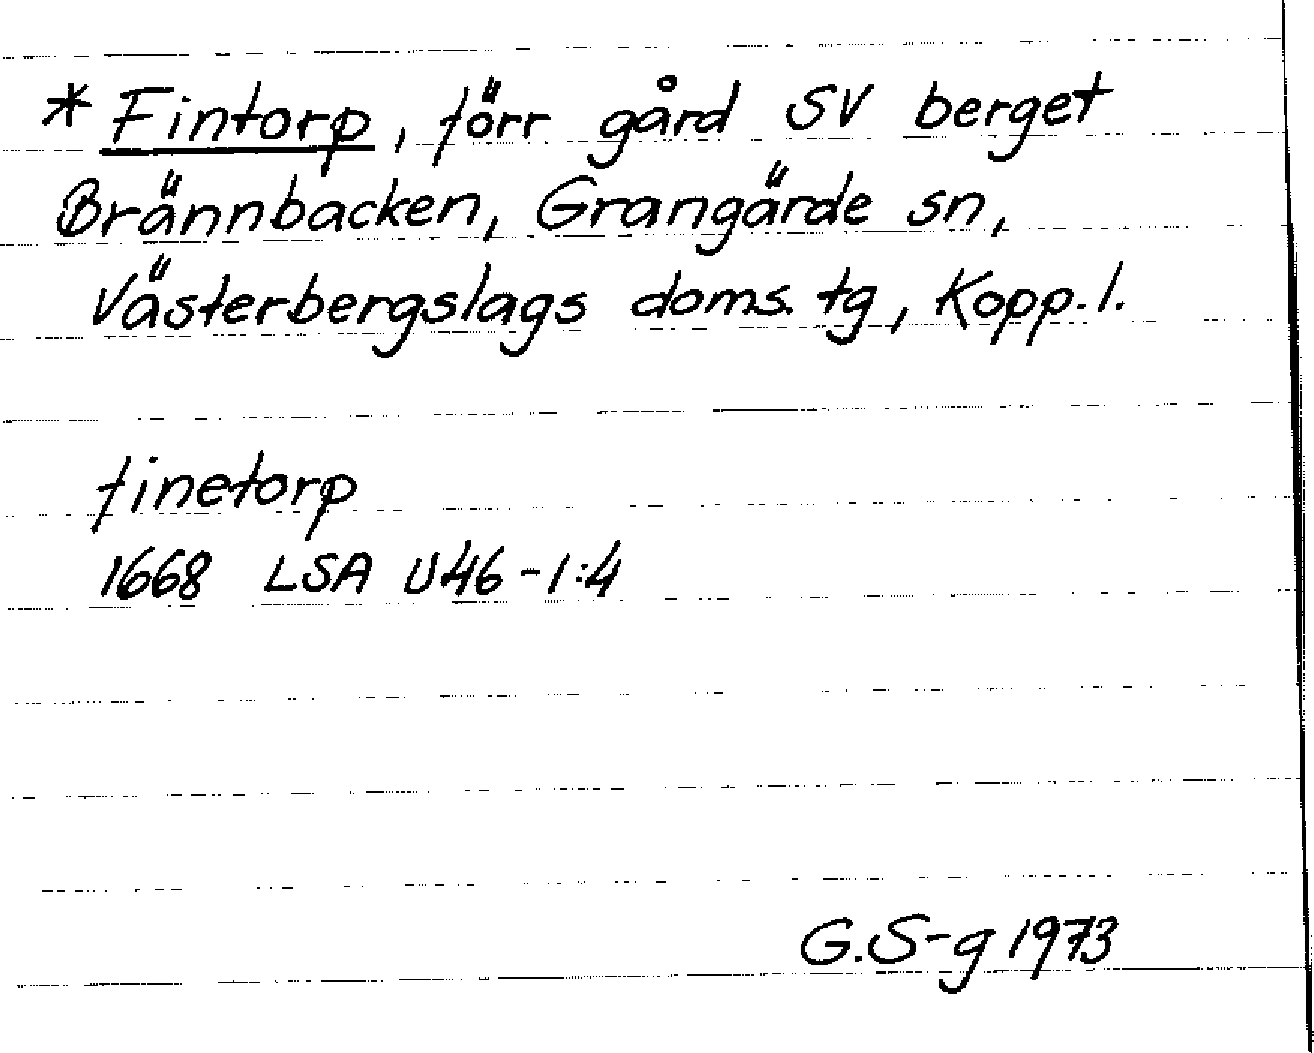 * Fintorp, förr gård SV berget
Brännbacken, Grangärde sn,
Västerbergslags doms. tg, Kopp. l.
finetorp
1668 LSA U46-1:4
G.S-g 1973